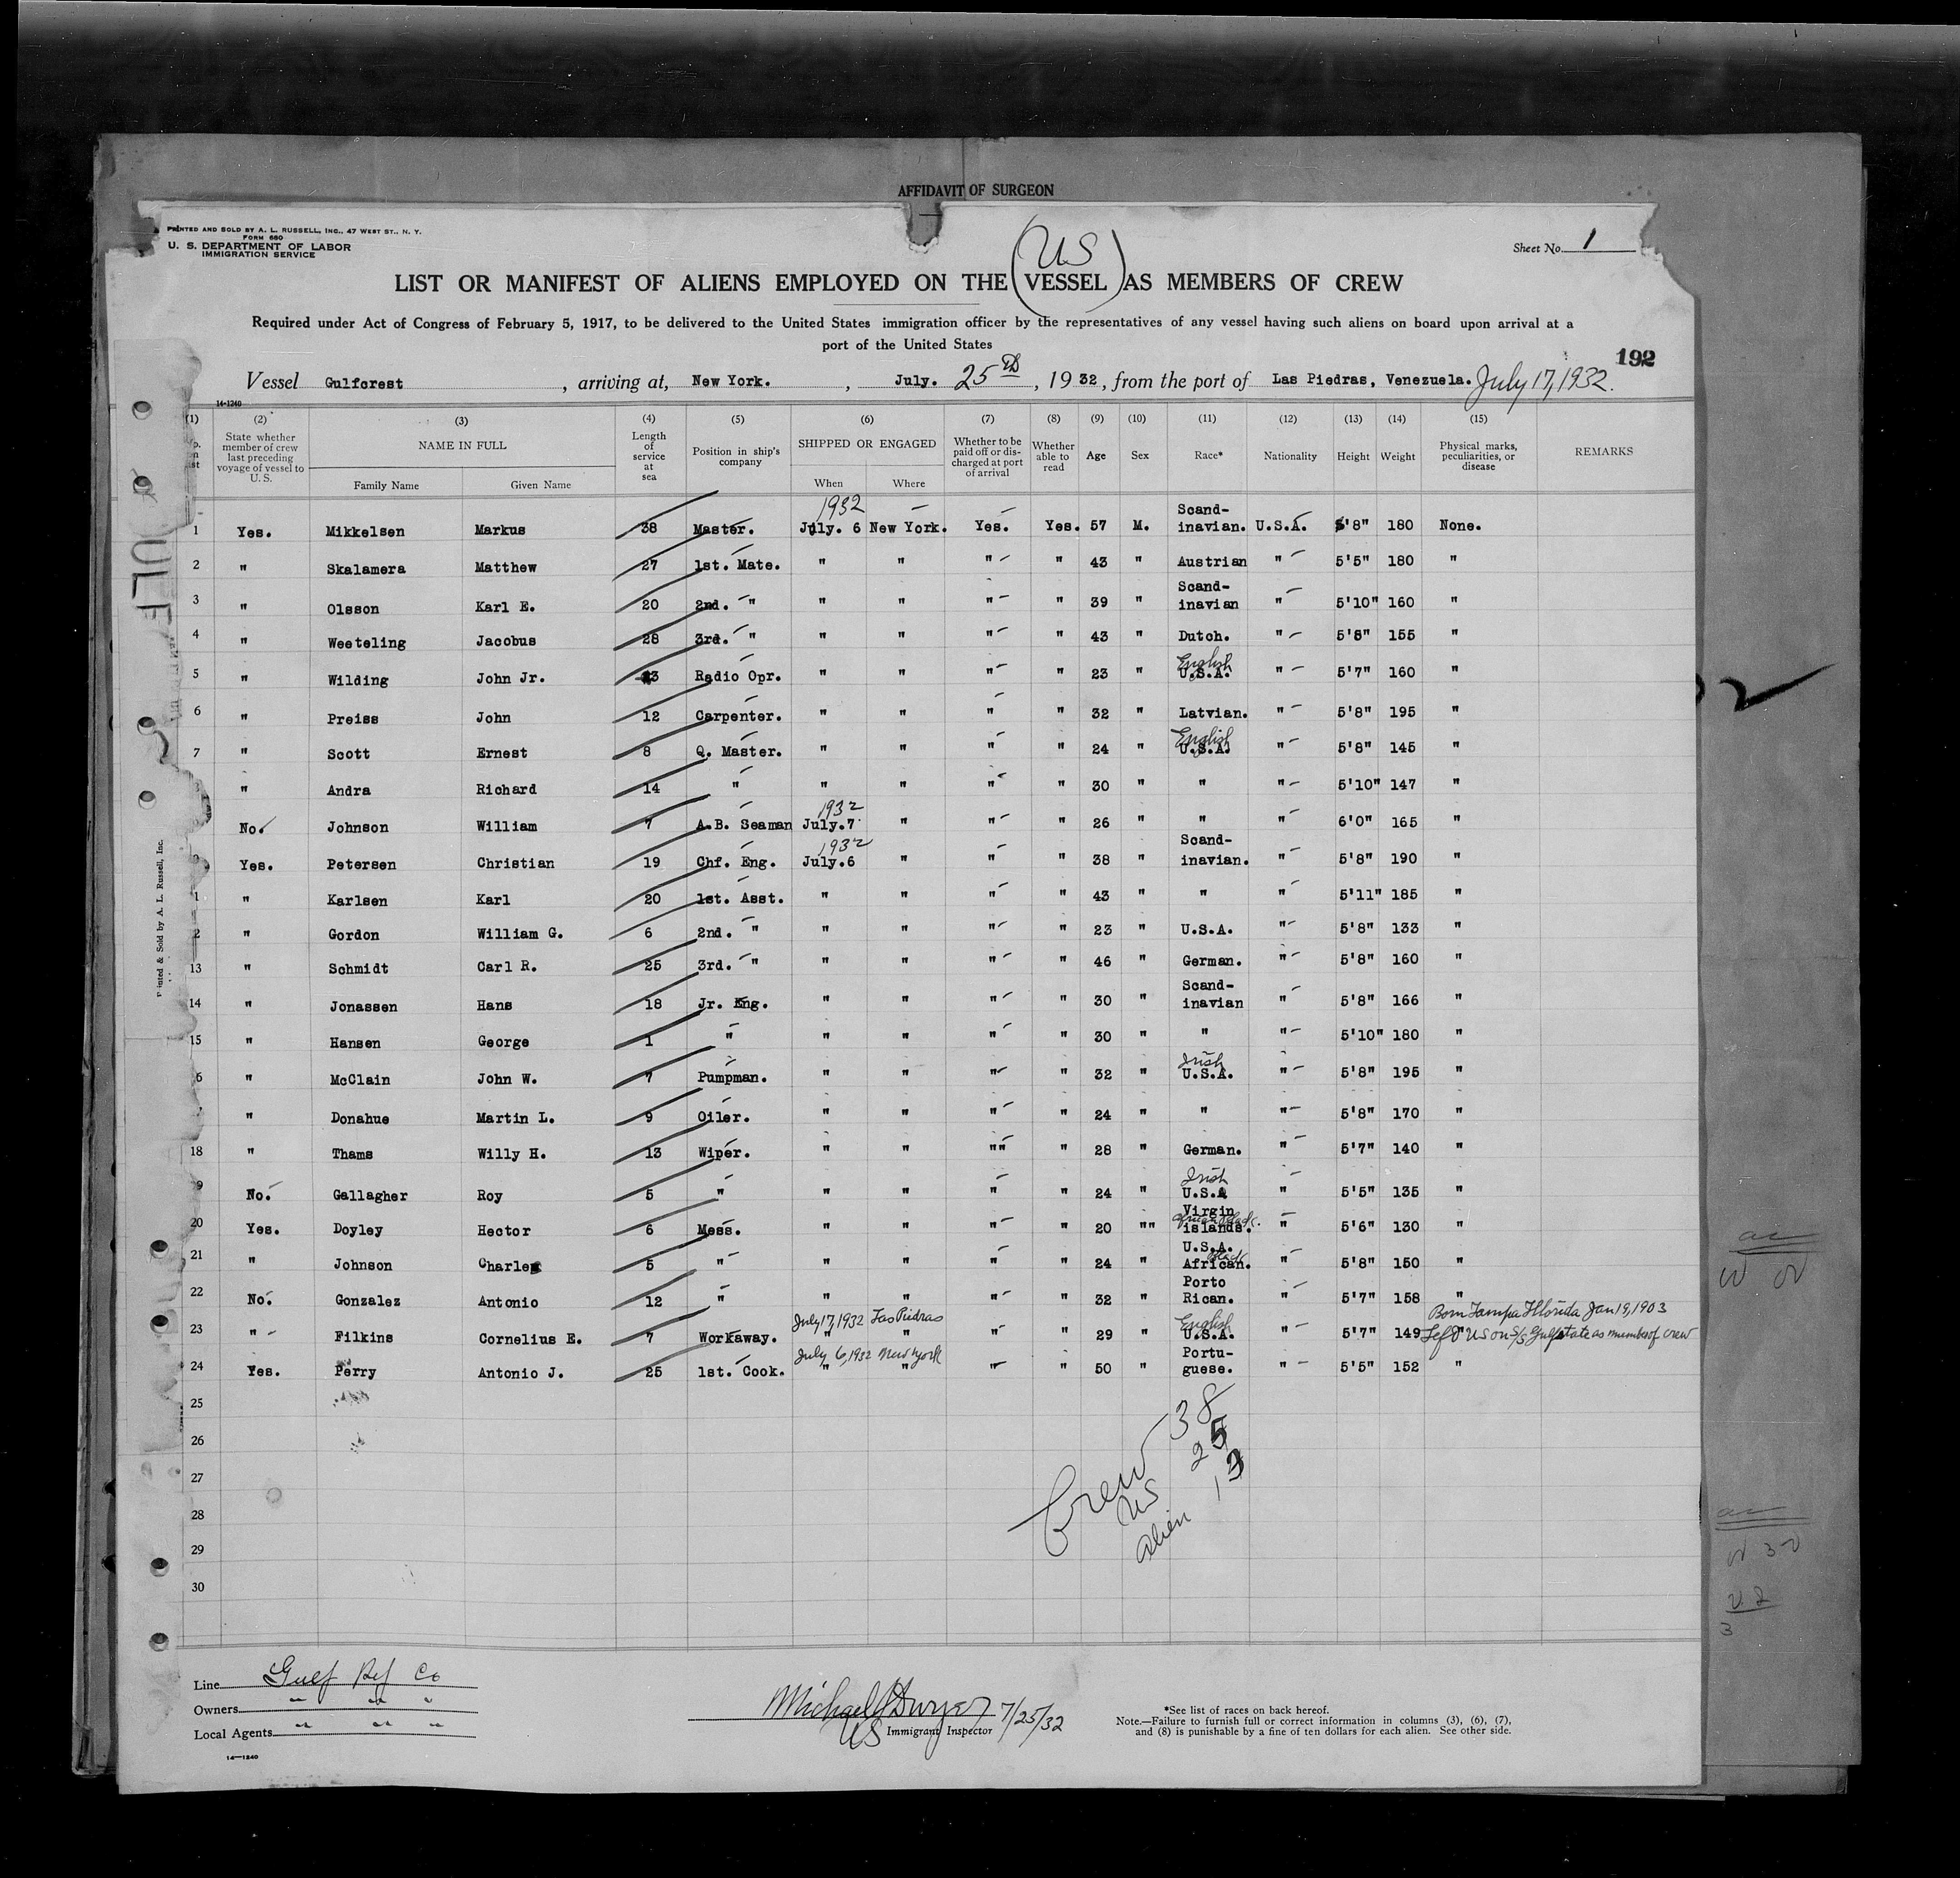 AFFIDAVIT OF SURGEON
PRINTED AND SOLD BY A. L. RUSSELL, INC., 47 WEST ST., N. Y.
FORM 680
U. S. DEPARTMENT OF LABOR
IMMIGRATION SERVICE
US
Sheet No. 1
LIST OR MANIFEST OF ALIENS EMPLOYED ON THE (VESSEL) AS MEMBERS OF CREW
Required under Act of Congress of February 5, 1917, to be delivered to the United States immigration officer by the representatives of any vessel having such aliens on board upon arrival at a
port of the United States
192
Vessel Gulfcrest, arriving at, New York., July. 25th, 1932, from the port of Las Piedras, Venezuela. July 17, 1932.
14-1240
(1) (2) (3) (4) (5) (6) (7) (8) (9) (10) (11) (12) (13) (14) (15)
State whether member of crew last preceding voyage of vessel to U. S.
NAME IN FULL
Family Name Given Name
Length of service at sea
Position in ship's company
SHIPPED OR ENGAGED
When Where
Whether to be paid off or discharged at port of arrival
Whether able to read
Age Sex Race* Nationality Height Weight
Physical marks, peculiarities, or disease
REMARKS
1 Yes. Mikkelsen Markus 38 Master. 1932 July. 6 New York. Yes. Yes. 57 M. Scand-inavian. U.S.A. 5'8" 180 None.
2 " Skalamera Matthew 27 1st. Mate. " " " " 43 " Austrian " 5'5" 180 "
3 " Olsson Karl E. 20 2nd. " " " " " 39 " Scand-inavian " 5'10" 160 "
4 " Weeteling Jacobus 28 3rd. " " " " " 43 " Dutch. " 5'8" 155 "
5 " Wilding John Jr. 3 Radio Opr. " " " " 23 " English U.S.A. " 5'7" 160 "
6 " Preiss John 12 Carpenter. " " " " 32 " Latvian. " 5'8" 195 "
7 " Scott Ernest 8 Q. Master. " " " " 24 " English U.S.A. " 5'8" 145 "
" Andra Richard 14 " " " " " 30 " " " 5'10" 147 "
No. Johnson William 7 A.B. Seaman 1932 July.7 " " " 26 " " " 6'0" 165 "
Yes. Petersen Christian 19 Chf. Eng. 1932 July.6 " " " 38 " Scand-inavian. " 5'8" 190 "
1 " Karlsen Karl 20 1st. Asst. " " " " 43 " " " 5'11" 185 "
2 " Gordon William G. 6 2nd. " " " " " 23 " U.S.A. " 5'8" 133 "
13 " Schmidt Carl R. 25 3rd. " " " " " 46 " German. " 5'8" 160 "
14 " Jonassen Hans 18 Jr. Eng. " " " " 30 " Scand-inavian " 5'8" 166 "
15 " Hansen George 1 " " " " " 30 " " " 5'10" 180 "
6 " McClain John W. 7 Pumpman. " " " " 32 " Irish U.S.A. " 5'8" 195 "
" Donahue Martin L. 9 Oiler. " " " " 24 " " " 5'8" 170 "
18 " Thams Willy H. 13 Wiper. " " "" " 28 " German. " 5'7" 140 "
9 No. Gallagher Roy 5 " " " " " 24 " Irish U.S.A " 5'5" 135 "
20 Yes. Doyley Hector 6 Mess. " " " " 20 "" Virgin islands. " 5'6" 130 "
21 " Johnson Charles 5 " " " " " 24 " U.S.A. Black African. " 5'8" 150 "
22 No. Gonzalez Antonio 12 " " " " " 32 " Porto Rican. " 5'7" 158 "
23 " Filkins Cornelius E. 7 Workaway. July 17, 1932 Las Piedras " " " " 29 " English U.S.A. " 5'7" 149 " Born Tampa Florida Jan 19, 1903 Left US on S/S Gulfstate as member of crew
24 Yes. Perry Antonio J. 25 1st. Cook. July 6, 1932 New York " " " " 50 " Portu-guese. " 5'5" 152 "
25
26
27
28
29
30
Crew 38
US 25
Alien 13
Line Gulf Ref Co
Owners " " "
Local Agents " " "
14—1240
Michael J Dwyer 7/25/32
US Immigrant Inspector
*See list of races on back hereof.
Note.—Failure to furnish full or correct information in columns (3), (6), (7),
and (8) is punishable by a fine of ten dollars for each alien. See other side.
Printed & Sold by A. L. Russell, Inc.
ULF